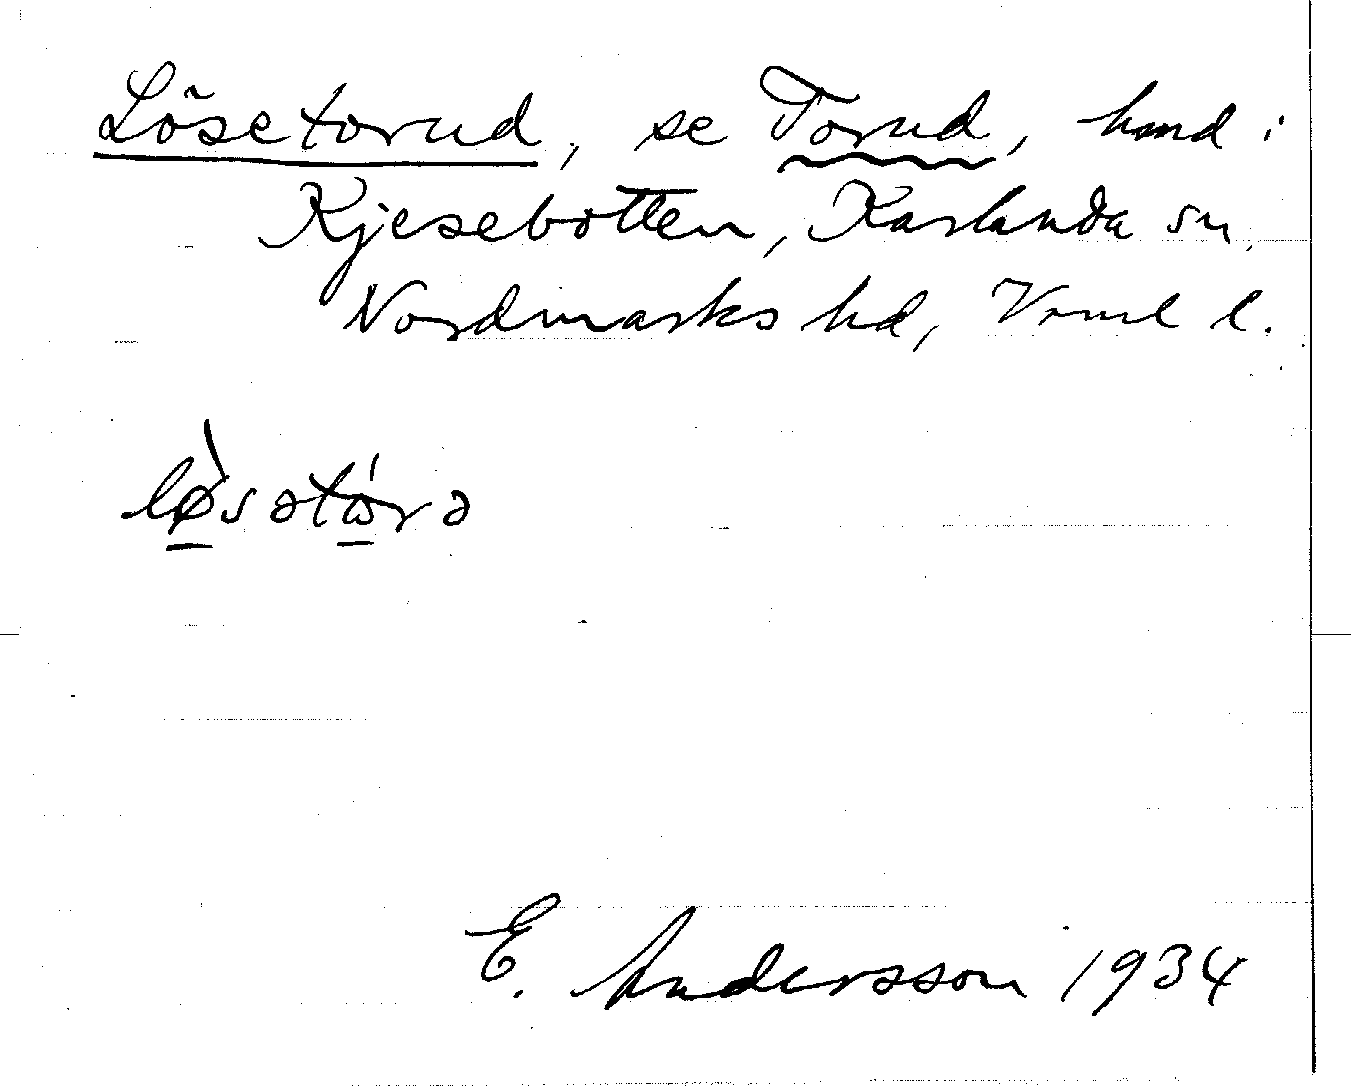 Lösetorud, se Torud, hmd i
Kjesebotten, Karlanda sn,
Nordmarks hd, Vrml l.
lø̀sətɷ́rə
E. Andersson 1934